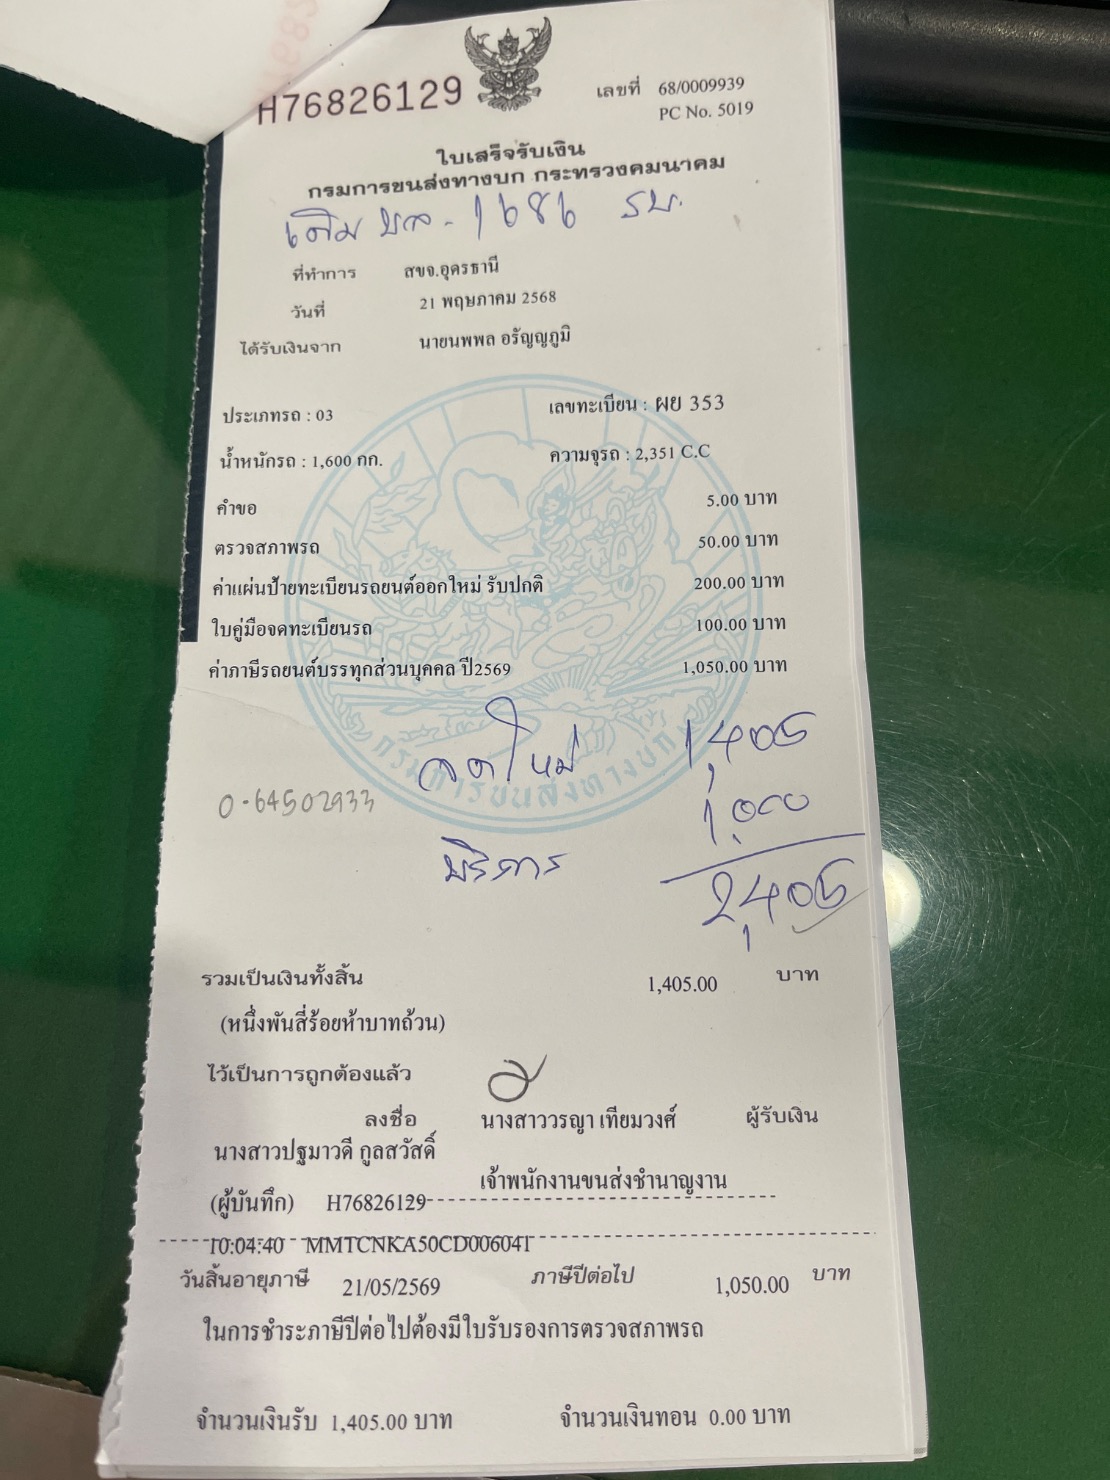 H76826129
เลขที่ 68/0009939
PC No. 5019
ใบเสร็จรับเงิน
กรมการขนส่งทางบก กระทรวงคมนาคม
เดิม บล - 1686 รบ.
ที่ทำการ สขจ.อุดรธานี
วันที่ 21 พฤษภาคม 2568
ได้รับเงินจาก นายนพพล อรัญญภูมิ
ประเภทรถ : 03 เลขทะเบียน : ผย 353
น้ำหนักรถ : 1,600 กก. ความจุรถ : 2,351 C.C
คำขอ 5.00 บาท
ตรวจสภาพรถ 50.00 บาท
ค่าแผ่นป้ายทะเบียนรถยนต์ออกใหม่ รับปกติ 200.00 บาท
ใบคู่มือจดทะเบียนรถ 100.00 บาท
ค่าภาษีรถยนต์บรรทุกส่วนบุคคล ปี2569 1,050.00 บาท
จดใหม่ 1,405
0-64502933 1,000
บริการ 2,405
กรมการขนส่งทางบก
รวมเป็นเงินทั้งสิ้น 1,405.00 บาท
(หนึ่งพันสี่ร้อยห้าบาทถ้วน)
ไว้เป็นการถูกต้องแล้ว
ลงชื่อ นางสาววรญา เทียมวงศ์ ผู้รับเงิน
นางสาวปฐมาวดี กูลสวัสดิ์
เจ้าพนักงานขนส่งชำนาญงาน
(ผู้บันทึก) H76826129
10:04:40 MMTCNKA50CD006041
วันสิ้นอายุภาษี 21/05/2569 ภาษีปีต่อไป 1,050.00 บาท
ในการชำระภาษีปีต่อไปต้องมีใบรับรองการตรวจสภาพรถ
จำนวนเงินรับ 1,405.00 บาท จำนวนเงินทอน 0.00 บาท